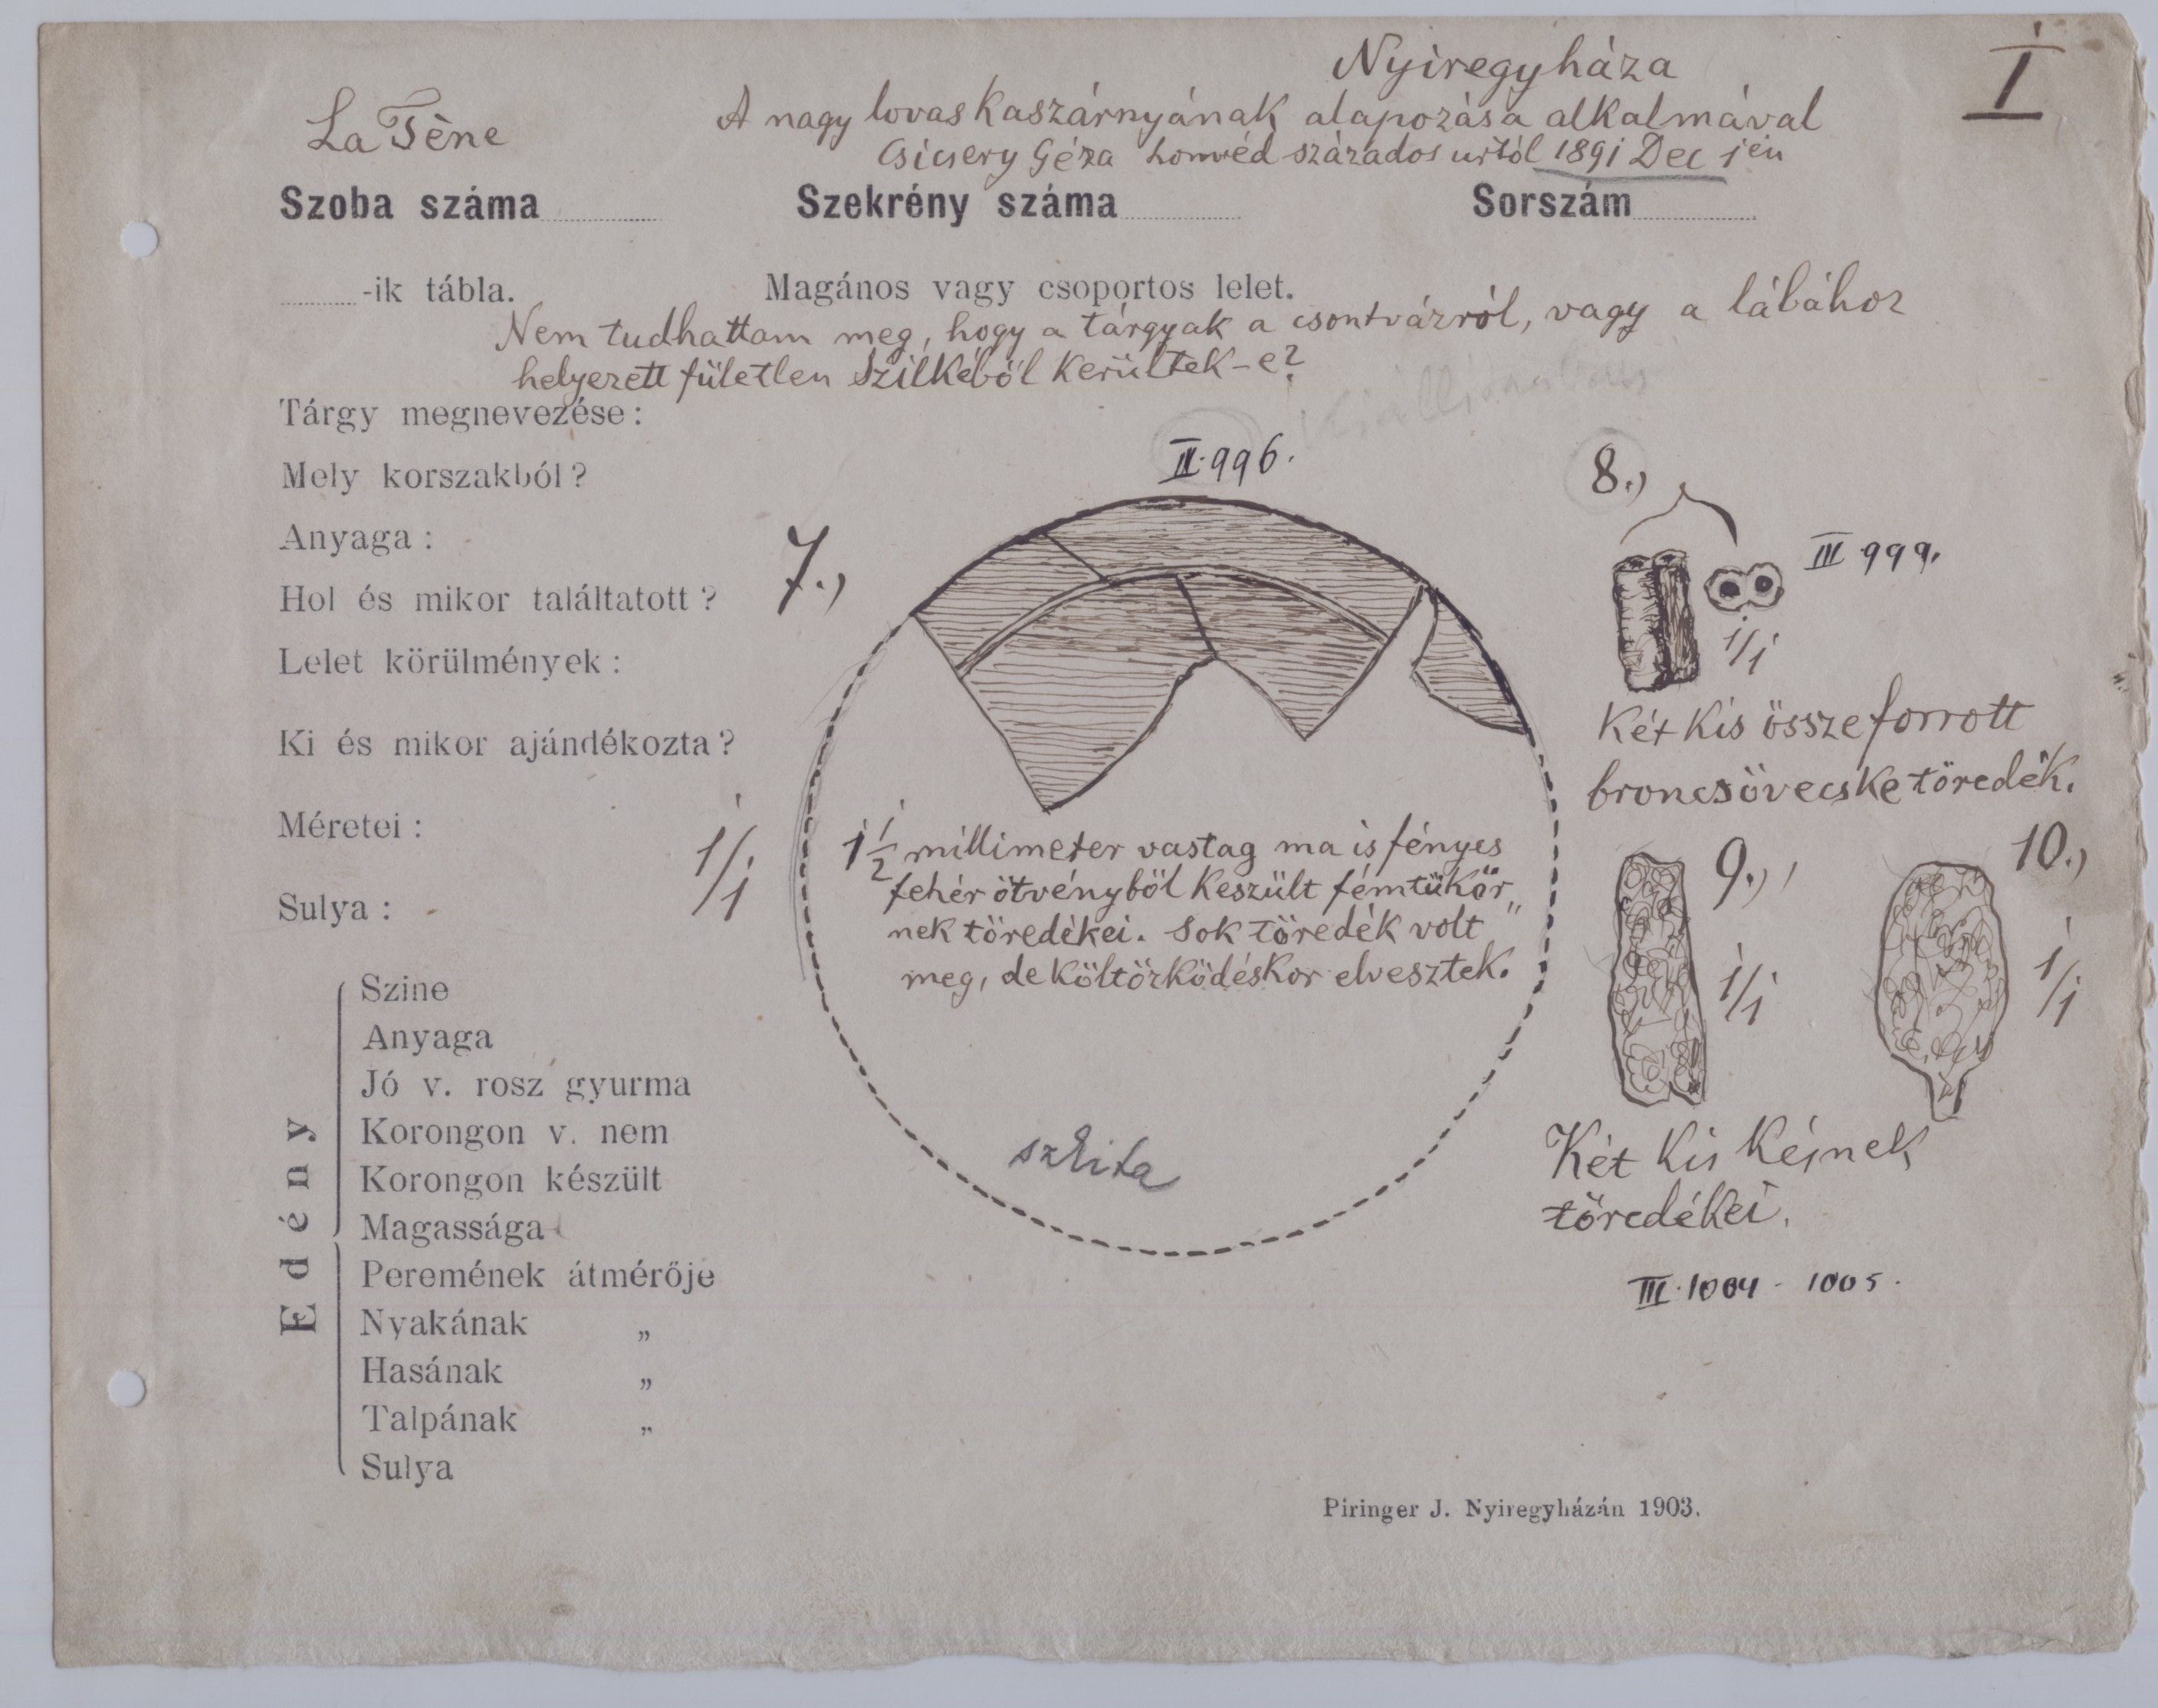 Nyiregyháza
I
La Tène
A nagy lovas kaszárnyának alapozása alkalmával
Csicsery Géza honvéd százados urtól 1891 Dec 1én
Szoba száma
Szekrény száma
Sorszám
-ik tábla.
Magános vagy csoportos lelet.
Nem tudhattam meg, hogy a tárgyak a csontvázról, vagy a lábához
helyezett fületlen szilkéből kerültek-e?
Tárgy megnevezése:
Mely korszakból?
Anyaga:
Hol és mikor találtatott?
Lelet körülmények:
Ki és mikor ajándékozta?
Méretei:
Sulya:
Edény
Szine
Anyaga
Jó v. rosz gyurma
Korongon v. nem
Korongon készült
Magassága
Peremének átmérője
Nyakának „
Hasának „
Talpának „
Sulya
7.,
996.
1/1
1 1/2 millimeter vastag ma is fényes
fehér ötvényből készült fémtükör„
nek töredékei. Sok töredék volt
meg, de költözködéskor elvesztek.
8.,
III 999.
1/1
Két kis összeforrott
broncsövecske töredék.
9.,
1/1
10.,
1/1
Két kis késnek
töredékei.
III. 1004 - 1005.
Piringer J. Nyiregyházán 1903.